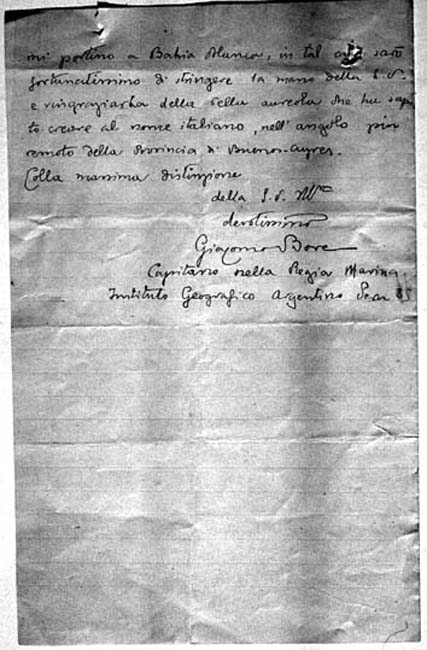 mi portino a Bahia Blanca, in tal caso sarò
fortunatissimo di stringere la mano della S. V.
e ringraziarla della bella aureola che ha sapu
to creare al nome italiano, nell'angolo più
remoto della Provincia di Buenos-Ayres.
Colla massima distinzione
della S. V. Ill.ma
devotissimo
Giacomo Bove
Capitano nella Regia Marina.
Instituto Geografico Argentino